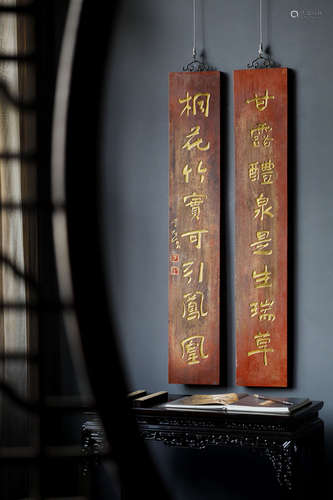 甘露醴泉是生瑞草
桐花竹實可引鳳凰